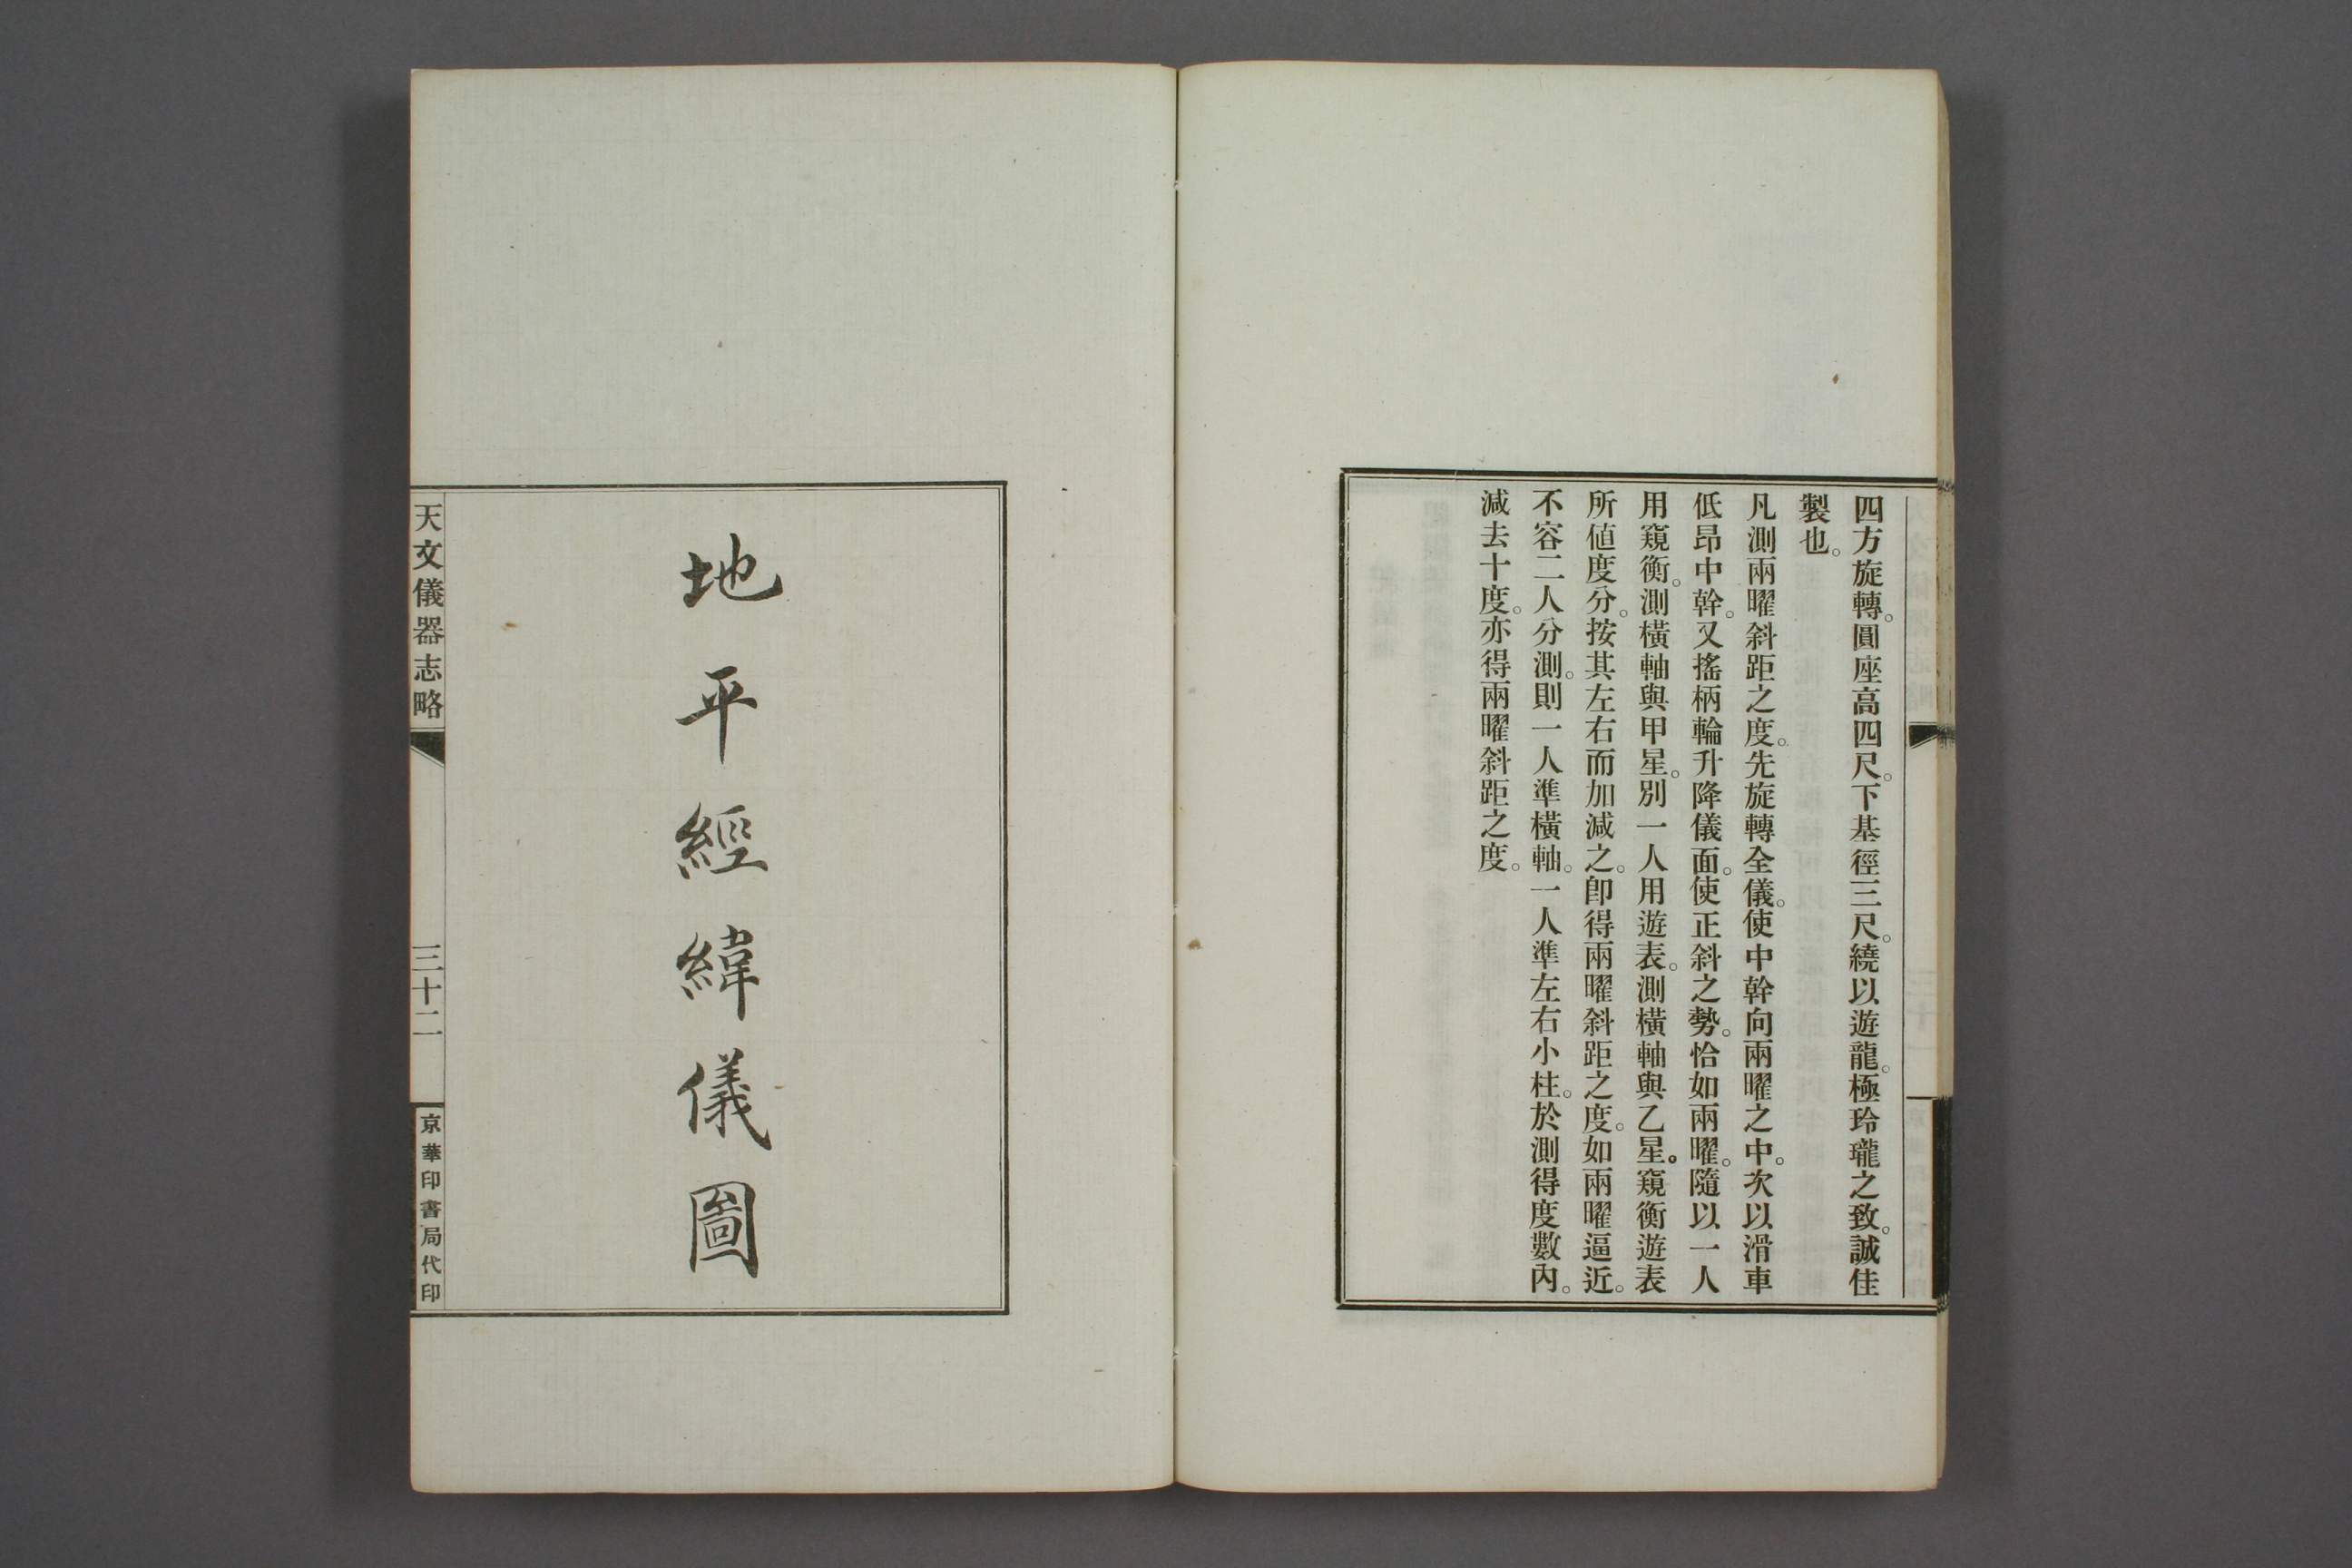 四方旋轉。圓座高四尺。下基徑三尺。繞以遊龍。極玲瓏之致。誠佳
製也。
凡測兩曜斜距之度。先旋轉全儀。使中幹向兩曜之中。次以滑車
低昂中幹。又搖柄輪升降儀面。使正斜之勢。恰如兩曜。隨以一人
用窺衡。測橫軸與甲星。別一人用遊表。測橫軸與乙星。窺衡遊表
所値度分。按其左右而加減之。卽得兩曜斜距之度。如兩曜逼近。
不容二人分測。則一人準橫軸。一人準左右小柱。於測得度數內。
減去十度。亦得兩曜斜距之度。
地平經緯儀圖
天文儀器志略
三十二
京華印書局代印